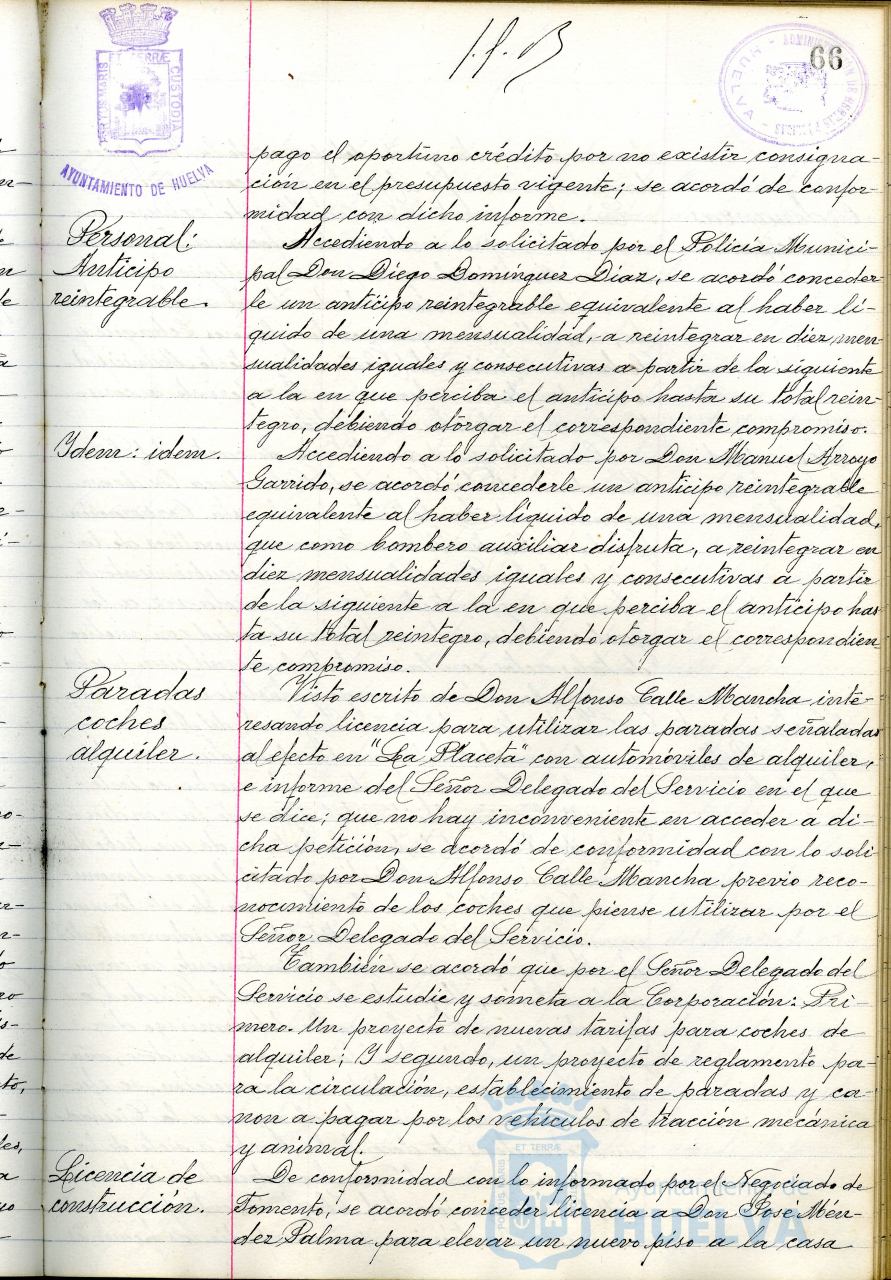 66
PORTUS MARIS ET TERRÆ CUSTODIA
AYUNTAMIENTO DE HUELVA
HUELVA
pago el oportuno crédito por no existir consigna-
ción en el presupuesto vigente; se acordó de confor-
midad con dicho informe.
Personal:
Anticipo
reintegrable.
Accediendo a lo solicitado por el Policía Munici-
pal Don Diego Domínguez Diaz, se acordó conceder-
le un anticipo reintegrable equivalente al haber lí-
quido de una mensualidad, a reintegrar en diez men-
sualidades iguales y consecutivas a partir de la siguiente
a la en que perciba el anticipo hasta su total rein-
tegro, debiendo otorgar el correspondiente compromiso.
Ydem: idem.
Accediendo a lo solicitado por Don Manuel Arroyo
Garrido, se acordó concederle un anticipo reintegrable
equivalente al haber líquido de una mensualidad,
que como bombero auxiliar disfruta, a reintegrar en
diez mensualidades iguales y consecutivas a partir
de la siguiente a la en que perciba el anticipo has
ta su total reintegro, debiendo otorgar el correspondien
te compromiso.
Paradas
coches
alquiler.
Visto escrito de Don Alfonso Calle Mancha inte-
resando licencia para utilizar las paradas señaladas
al efecto en "La Placeta" con automóviles de alquiler,
e informe del Señor Delegado del Servicio en el que
se dice; que no hay inconveniente en acceder a di-
cha petición, se acordó de conformidad con lo soli
citado por Don Alfonso Calle Mancha previo reco-
nocimiento de los coches que piense utilizar por el
Señor Delegado del Servicio.
También se acordó que por el Señor Delegado del
Servicio se estudie y someta a la Corporación: Pri-
mero. Un proyecto de nuevas tarifas para coches de
alquiler; Y segundo, un proyecto de reglamento pa-
ra la circulación, establecimiento de paradas y ca-
non a pagar por los vehículos de tracción mecánica
y animal.
Licencia de
construcción.
De conformidad con lo informado por el Negociado de
Fomento, se acordó conceder licencia a Don Jose Mén-
dez Palma para elevar un nuevo piso a la casa
PORTUS MARIS ET TERRÆ
Ayuntamiento de
HUELVA